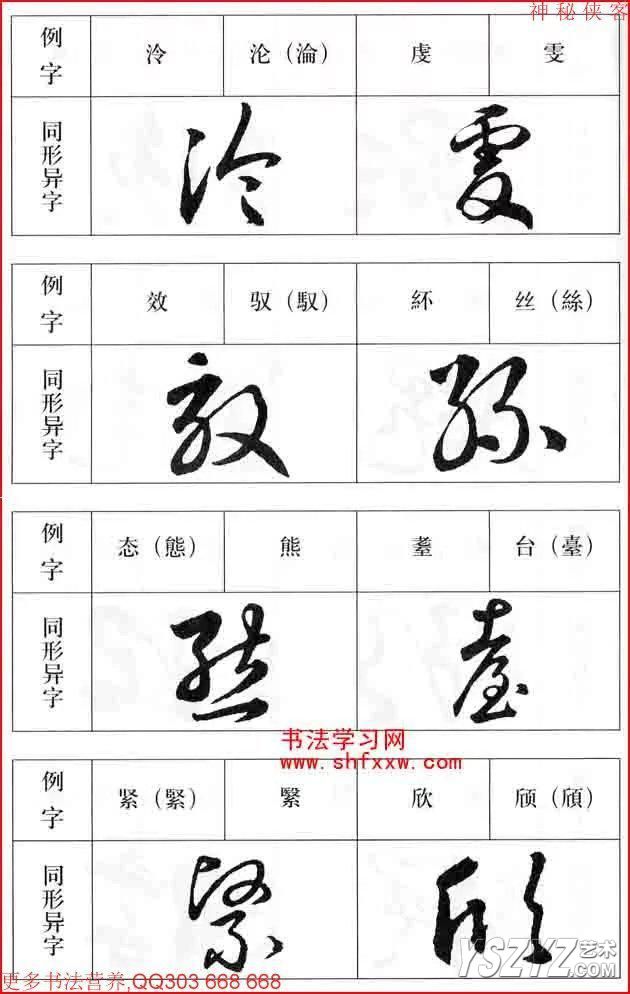 神秘侠客
例字 泠 沦（淪） 虔 雯
同形异字
例字 效 驭（馭） 紑 丝（絲）
同形异字
例字 态（態） 熊 耋 台（臺）
同形异字
书法学习网
www.shfxxw.com
例字 紧（緊） 繄 欣 颀（頎）
同形异字
YSZYZ艺术
.com
更多书法营养,QQ303 668 668